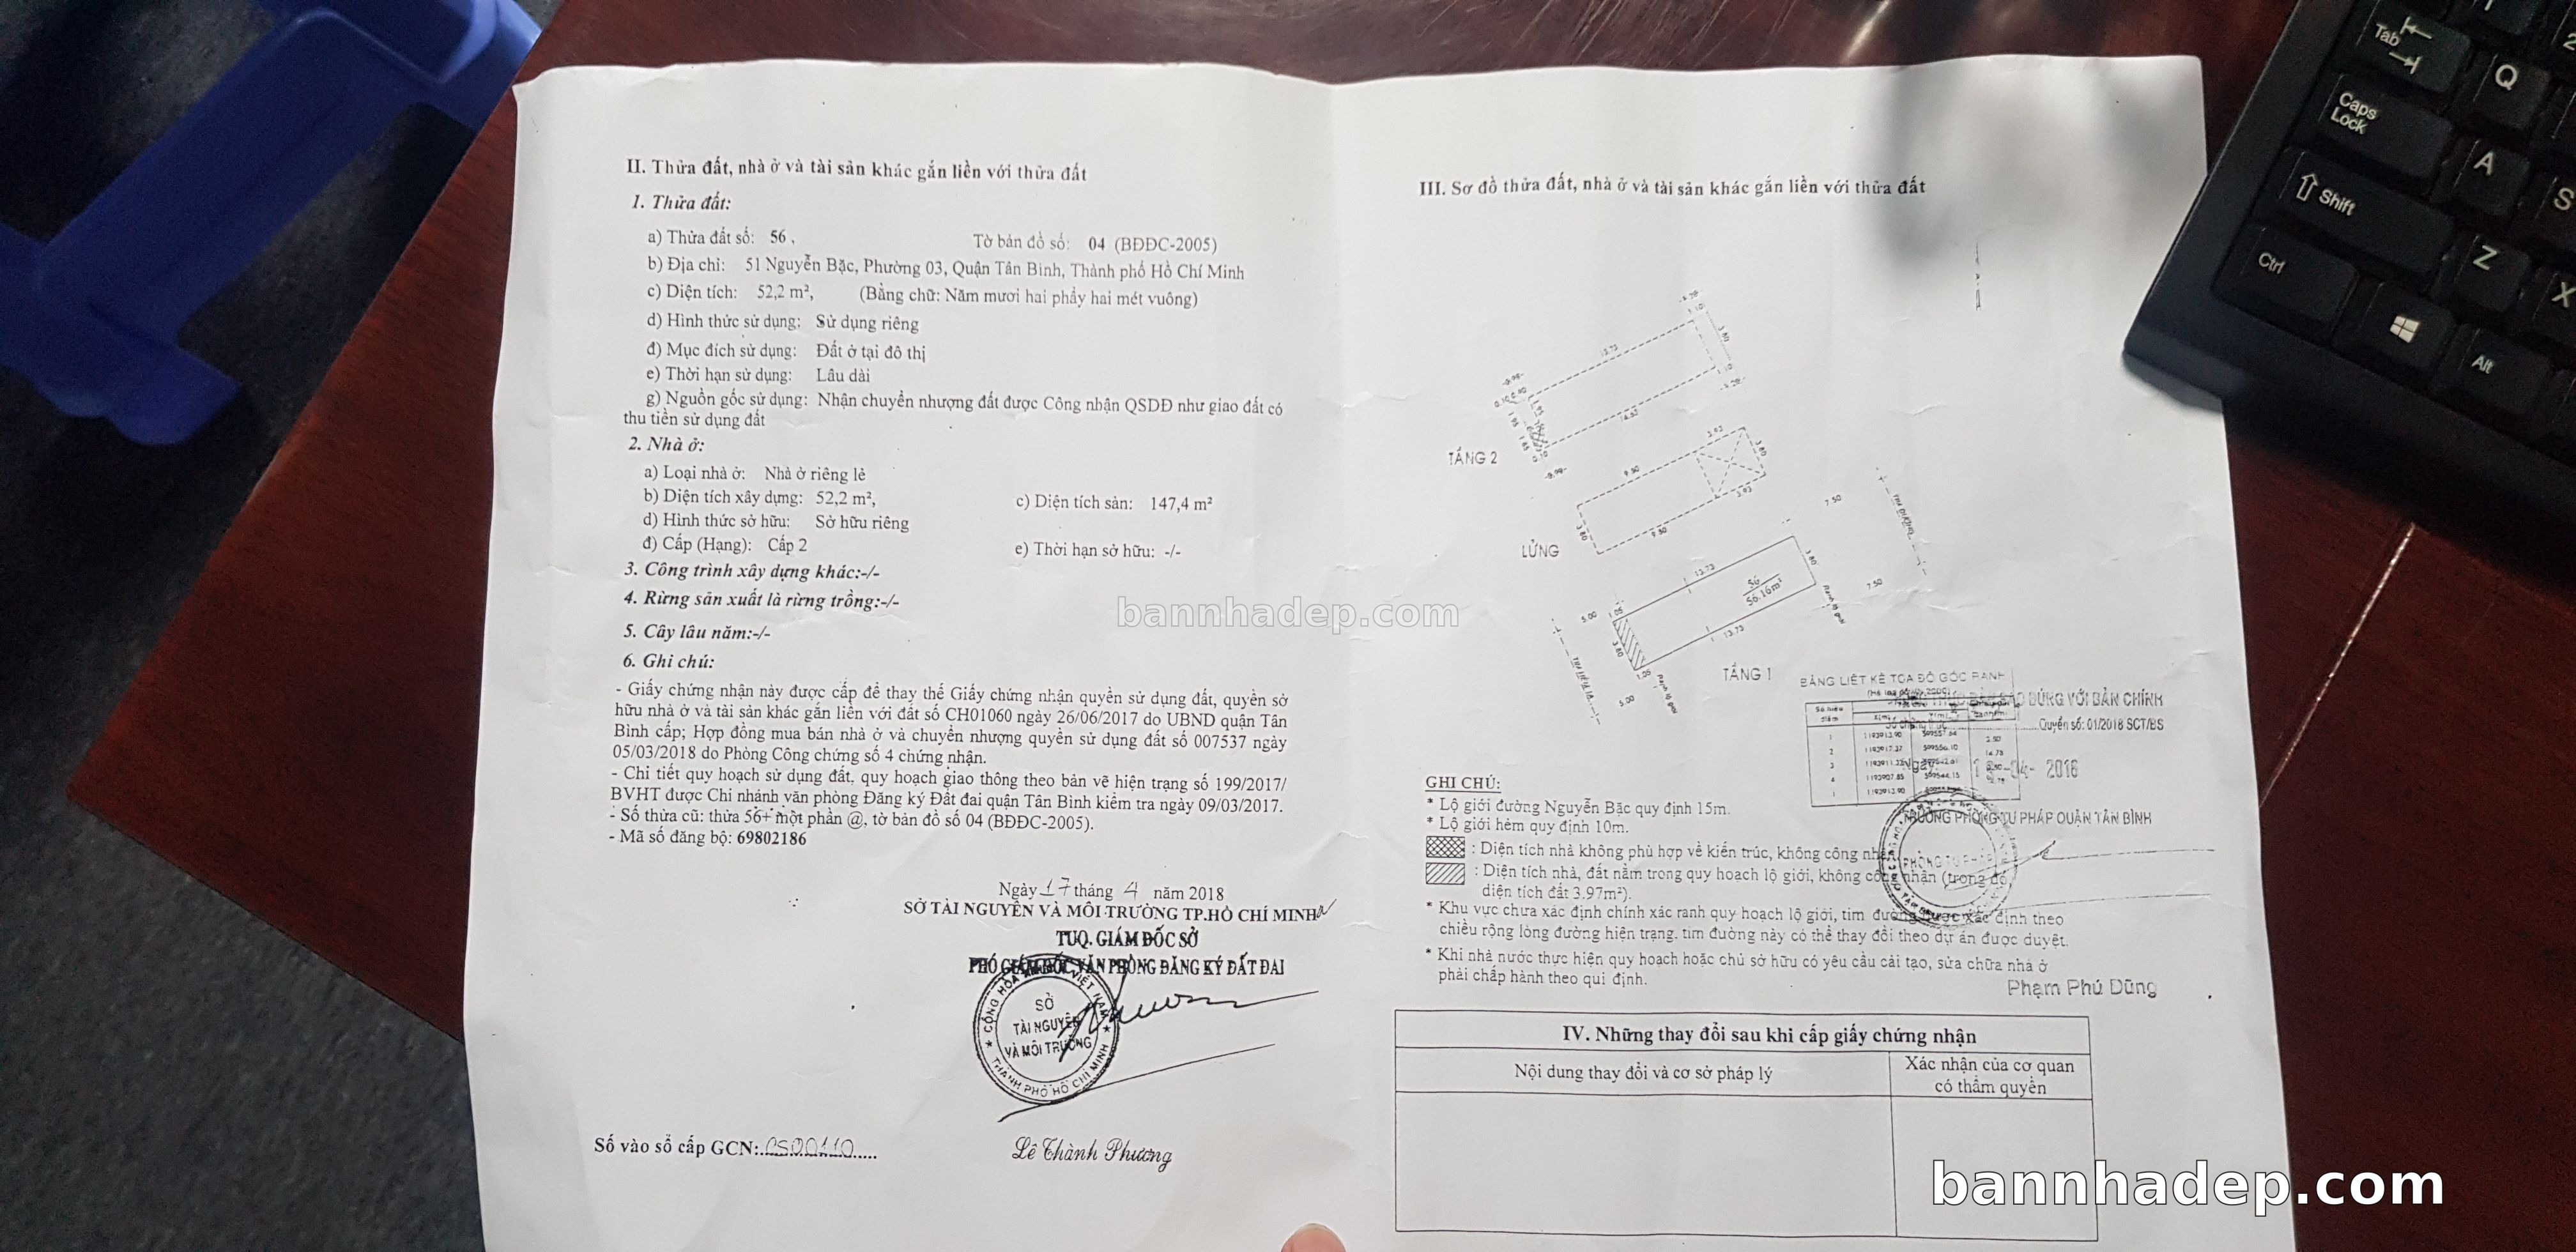 II. Thửa đất, nhà ở và tài sản khác gắn liền với thửa đất
1. Thửa đất:
a) Thửa đất số: 56 , Tờ bản đồ số: 04 (BĐĐC-2005)
b) Địa chỉ: 51 Nguyễn Bặc, Phường 03, Quận Tân Bình, Thành phố Hồ Chí Minh
c) Diện tích: 52,2 m², (Bằng chữ: Năm mươi hai phẩy hai mét vuông)
d) Hình thức sử dụng: Sử dụng riêng
đ) Mục đích sử dụng: Đất ở tại đô thị
e) Thời hạn sử dụng: Lâu dài
g) Nguồn gốc sử dụng: Nhận chuyển nhượng đất được Công nhận QSDĐ như giao đất có
thu tiền sử dụng đất
2. Nhà ở:
a) Loại nhà ở: Nhà ở riêng lẻ
b) Diện tích xây dựng: 52,2 m², c) Diện tích sàn: 147,4 m²
d) Hình thức sở hữu: Sở hữu riêng
đ) Cấp (Hạng): Cấp 2 e) Thời hạn sở hữu: -/-
3. Công trình xây dựng khác:-/-
4. Rừng sản xuất là rừng trồng:-/-
5. Cây lâu năm:-/-
6. Ghi chú:
- Giấy chứng nhận này được cấp để thay thế Giấy chứng nhận quyền sử dụng đất, quyền sở
hữu nhà ở và tài sản khác gắn liền với đất số CH01060 ngày 26/06/2017 do UBND quận Tân
Bình cấp; Hợp đồng mua bán nhà ở và chuyển nhượng quyền sử dụng đất số 007537 ngày
05/03/2018 do Phòng Công chứng số 4 chứng nhận.
- Chi tiết quy hoạch sử dụng đất, quy hoạch giao thông theo bản vẽ hiện trạng số 199/2017/
BVHT được Chi nhánh văn phòng Đăng ký Đất đai quận Tân Bình kiểm tra ngày 09/03/2017.
- Số thửa cũ: thửa 56+ một phần @, tờ bản đồ số 04 (BĐĐC-2005).
- Mã số đăng bộ: 69802186
Ngày 17 tháng 4 năm 2018
SỞ TÀI NGUYÊN VÀ MÔI TRƯỜNG TP.HỒ CHÍ MINH
TUQ. GIÁM ĐỐC SỞ
PHÓ GIÁM ĐỐC VĂN PHÒNG ĐĂNG KÝ ĐẤT ĐAI
CỘNG HÒA VIỆT NAM
SỞ
TÀI NGUYÊN
VÀ MÔI TRƯỜNG
THÀNH PHỐ HỒ CHÍ MINH
Lê Thành Phương
Số vào sổ cấp GCN: CS00110
III. Sơ đồ thửa đất, nhà ở và tài sản khác gắn liền với thửa đất
13.73
3.80
14.67
TẦNG 2
3.93
9.80
3.80
3.80
3.93
9.80
LỬNG
7.50
TIM ĐƯỜNG
7.50
13.73
3.80
56
56.16m²
13.73
3.80
5.00
5.00
TẦNG 1
BẢNG LIỆT KÊ TỌA ĐỘ GÓC RANH
ĐÚNG VỚI BẢN CHÍNH
Quyển số: 01/2018 SCT/BS
Ngày
-04- 2018
TRƯỞNG PHÒNG TƯ PHÁP QUẬN TÂN BÌNH
PHÒNG TƯ PHÁP
Phạm Phú Dũng
GHI CHÚ:
* Lộ giới đường Nguyễn Bặc quy định 15m.
* Lộ giới hẻm quy định 10m.
: Diện tích nhà không phù hợp về kiến trúc, không công nhận
: Diện tích nhà, đất nằm trong quy hoạch lộ giới, không công nhận (trong đó,
diện tích đất 3.97m²).
* Khu vực chưa xác định chính xác ranh quy hoạch lộ giới, tim đường được xác định theo
chiều rộng lòng đường hiện trạng. tim đường này có thể thay đổi theo dự án được duyệt.
* Khi nhà nước thực hiện quy hoạch hoặc chủ sở hữu có yêu cầu cải tạo, sửa chữa nhà ở
phải chấp hành theo qui định.
IV. Những thay đổi sau khi cấp giấy chứng nhận
Nội dung thay đổi và cơ sở pháp lý
Xác nhận của cơ quan
có thẩm quyền
bannhadep.com
bannhadep.com
Tab
Q
Caps
Lock
A
S
Shift
Z
X
Ctrl
Alt